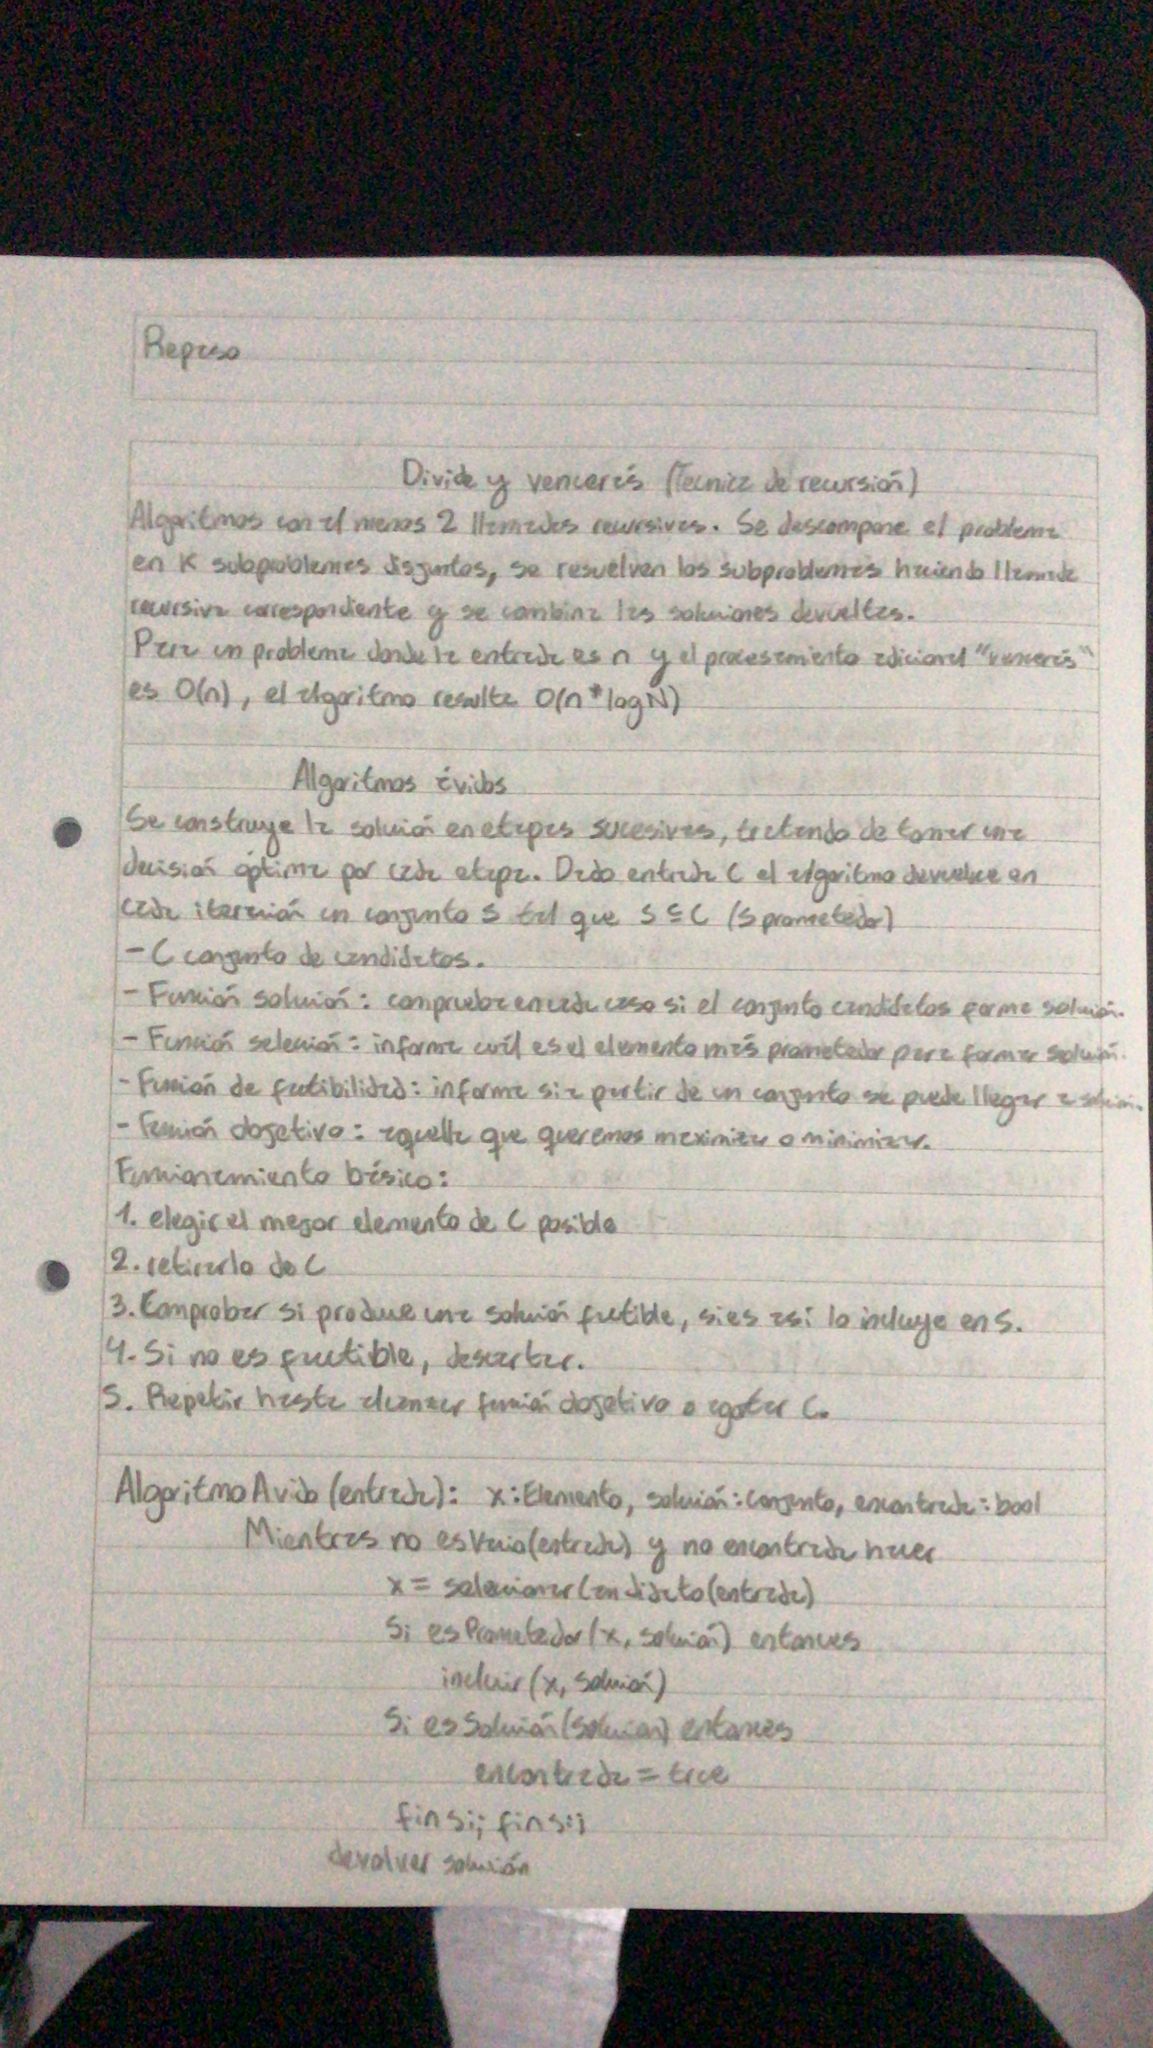 Repaso
Divide y vencerás (Tecnica de recursión)
Algoritmos con al menos 2 llamadas recursivas. Se descompone el problema
en K subproblemas disjuntos, se resuelven los subproblemas haciendo llamada
recursiva correspondiente y se combina las soluciones devueltas.
Para un problema donde la entrada es n y el procesamiento adicional "vencerás"
es O(n), el algoritmo resulta O(n*logN)
Algoritmos ávidos
Se construye la solución en etapas sucesivas, tratando de tomar una
decisión óptima por cada etapa. Dado entrada C el algoritmo devuelve en
cada iteración un conjunto S tal que S ⊆ C (S prometedor)
- C conjunto de candidatos.
- Función solución: comprueba en cada caso si el conjunto candidatos forma solución.
- Función selección: informa cuál es el elemento más prometedor para formar solución.
- Función de factibilidad: informa si a partir de un conjunto se puede llegar a solución.
- Función objetivo: aquella que queremos maximizar o minimizar.
Funcionamiento básico:
1. elegir el mejor elemento de C posible
2. retirarlo de C
3. Comprobar si produce una solución factible, si es así lo incluye en S.
4. Si no es factible, descartar.
5. Repetir hasta alcanzar función objetivo o agotar C.
Algoritmo Avido (entrada): x: Elemento, solución: conjunto, encontrada: bool
Mientras no esVacio(entrada) y no encontrada hacer
x = seleccionarCandidato(entrada)
Si esPrometedor(x, solución) entonces
incluir(x, solución)
Si esSolución(solución) entonces
encontrada = true
fin si; fin si;
devolver solución